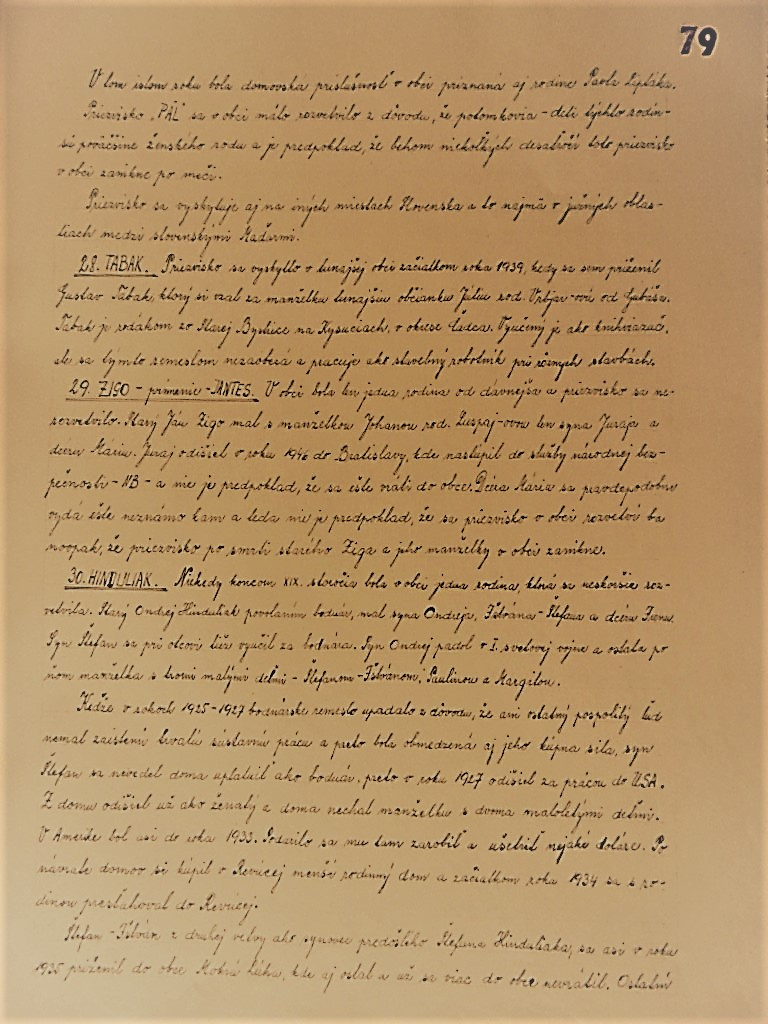 79
V tom istom roku bola domovská príslušnosť v obci priznaná aj rodine Pavla Liptáka.
Priezvisko „PÁL" sa v obci málo rozvetvilo z dôvodu, že potomkovia - deti týchto rodín -
sú poväčšine ženského rodu a je predpoklad, že behom niekoľkých desaťročí toto priezvisko
v obci zanikne po meči.
Priezvisko sa vyskytuje aj na iných miestach Slovenska a to najmä v južných oblas-
tiach medzi slovenskými Maďarmi.
28. TABAK. Priezvisko sa vyskytlo v tunajšej obci začiatkom roka 1939, kedy sa sem priženil
Gustav Tabak, ktorý si vzal za manželku tunajšiu občianku Júliu rod. Vrbjar-ovú od Gubáša.
Tabak je rodákom zo Starej Bystrice na Kysuciach, v okrese Čadca. Vyučený je ako knihviazač,
ale sa týmto remeslom nezaoberá a pracuje ako stavebný robotník pri rôznych stavbách.
29. ZIGO - prímenie - JANTES. V obci bola len jedna rodina od dávnejša a priezvisko sa ne-
rozvetvilo. Starý Ján Zigo mal s manželkou Johanou rod. -ovou len syna Juraja a
dcéru Máriu. Juraj odišiel v roku 1946 do Bratislavy, kde nastúpil do služby národnej bez-
pečnosti - NB - a nie je predpoklad, že sa ešte vráti do obce. Dcéra Mária sa pravdepodobne
vydá ešte neznámo kam a teda nie je predpoklad, že sa priezvisko v obci rozvetví ba
noopak, že priezvisko po smrti starého Ziga a jeho manželky v obci zanikne.
30. HINDULIAK. Niekedy koncom XIX. storočia bola v obci jedna rodina, ktorá sa neskoršie roz-
vetvila. Starý Ondrej Hinduliak povolaním bodnár, mal syna Ondreja, Ištvána - Štefana a dcéru
Syn Štefan sa pri otcovi tiež vyučil za bodnára. Syn Ondrej padol v I. svetovej vojne a ostala po
ňom manželka s tromi malými deťmi - Štefanom - Ištvánom, Paulínou a Margitou.
Keďže v rokoch 1925-1927 bodnárske remeslo upadalo z dôvodu, že ani ostatný pospolitý ľud
nemal zaistenú trvalú sústavnú prácu a preto bola obmedzená aj jeho kúpna sila, syn
Štefan sa nevedel doma uplatniť ako bodnár, preto v roku 1927 odišiel za prácou do USA.
Z domu odišiel už ako ženatý a doma nechal manželku s dvoma maloletými deťmi.
V Amerike bol asi do roka 1933. Podarilo sa mu tam zarobiť a ušetriť nejaké doláre. Po
návrate domov si kúpil v Revúcej menší rodinný dom a začiatkom roka 1934 sa s ro-
dinou presťahoval do Revúcej.
Štefan - Ištván z druhej vetvy ako synovec predošlého Štefana Hinduliaka, sa asi v roku
1935 priženil do obce Mokrá Lúka, kde aj ostal a už sa viac do obce nevrátil. Ostatní